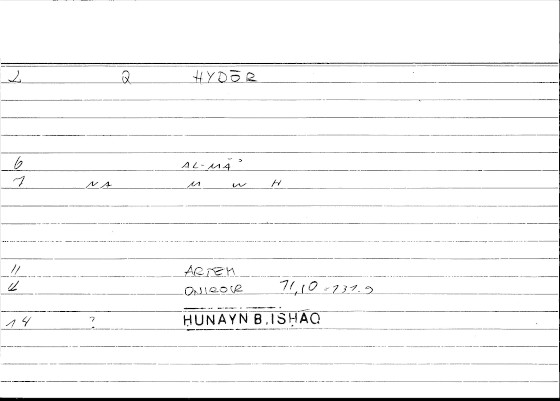 2 Q HYDŌR
6 AL-MĀʾ
7 NA M W H
11 ARTEM
12 ONIROCR 71,10-131.9
14 ? HUNAYN B.ISHĀQ